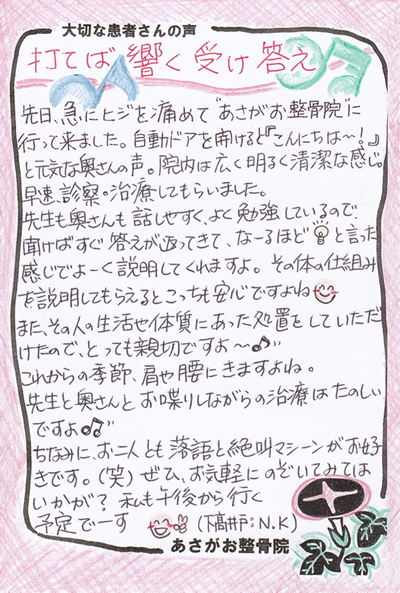 大切な患者さんの声
打てば響く受け答え
先日、急にヒジを痛めて"あさがお整骨院"に
行って来ました。自動ドアを開けると『こんにちは〜!』
と元気な奥さんの声。院内は広く明るく清潔な感じ。
早速、診察。治療してもらいました。
先生も奥さんも話しやすく、よく勉強しているので、
聞けばすぐ答えが返ってきて、なーるほど と言った
感じでよーく説明してくれますよ。その体の仕組み
を説明してもらえるとこっちも安心ですよね
また、その人の生活や体質にあった処置をしていただ
けたので、とっても親切ですよ〜♪
これからの季節、肩や腰にきますよね。
先生と奥さんとお喋りしながらの治療はたのしい
ですよ♪
ちなみに、お二人とも落語と絶叫マシーンがお好
きです。(笑)ぜひ、お気軽にのぞいてみては
いかが?私も午後から行く
予定でーす (下高井戸:N.K)
あさがお整骨院